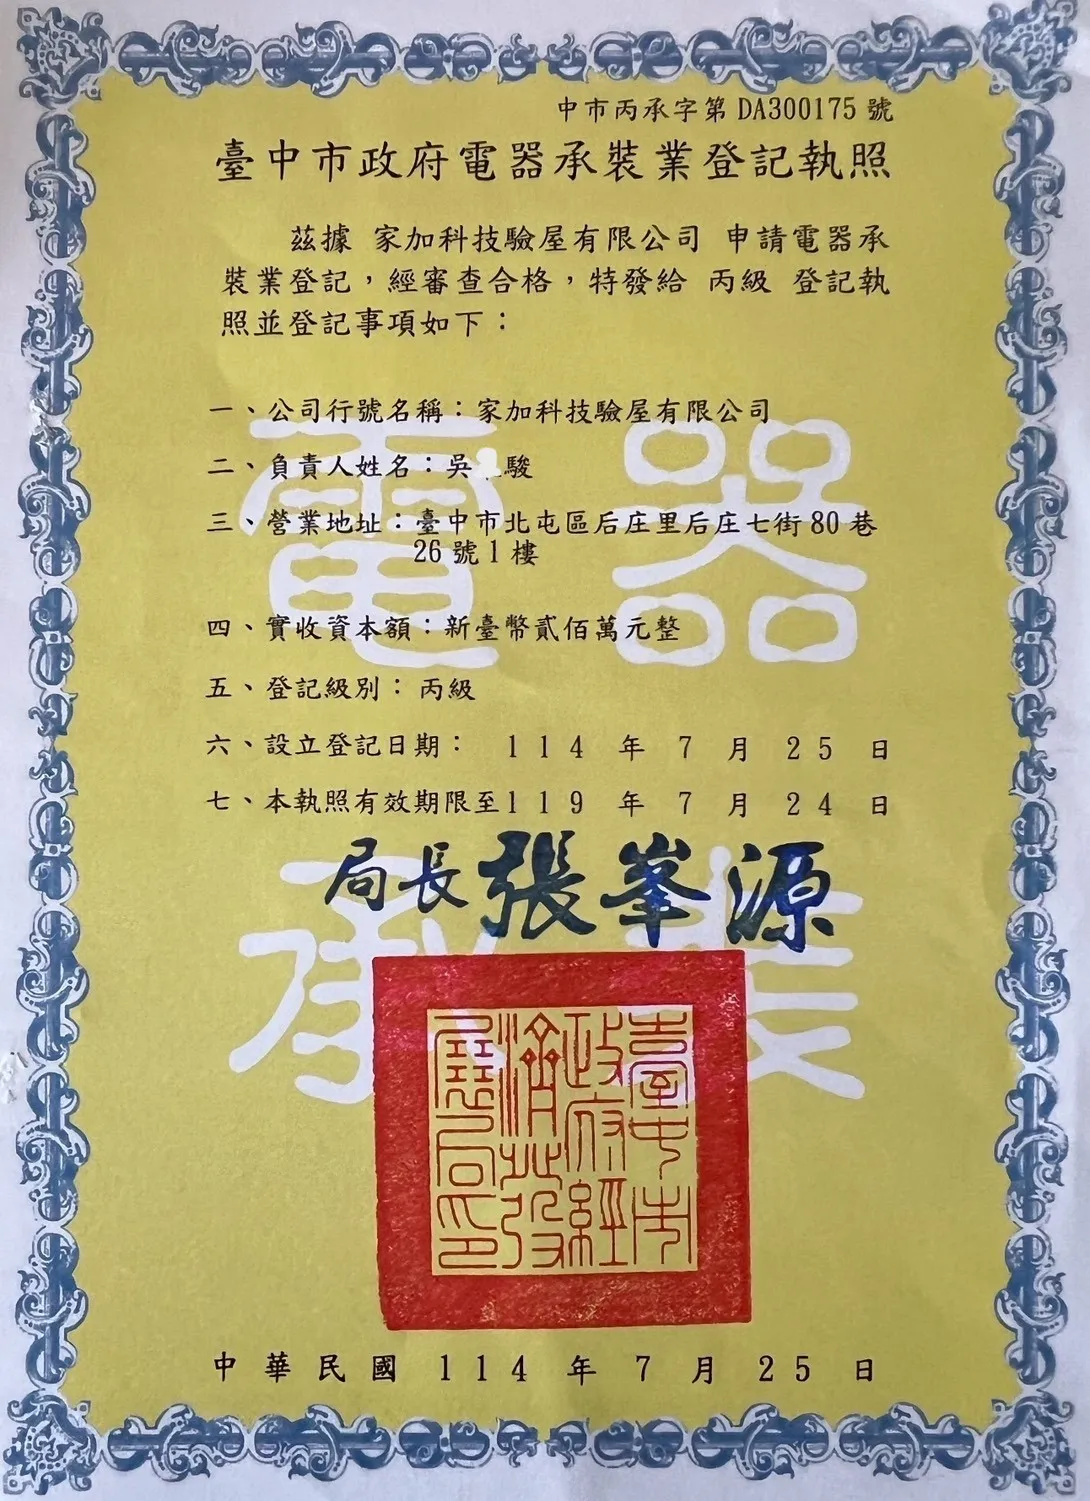 中市丙承字第 DA300175 號
臺中市政府電器承裝業登記執照
茲據 家加科技驗屋有限公司 申請電器承
裝業登記，經審查合格，特發給 丙級 登記執
照並登記事項如下：
一、公司行號名稱：家加科技驗屋有限公司
二、負責人姓名：吳 駿
三、營業地址：臺中市北屯區后庄里后庄七街80巷
26號1樓
四、實收資本額：新臺幣貳佰萬元整
五、登記級別：丙級
六、設立登記日期： 114 年 7 月 25 日
七、本執照有效期限至119 年 7 月 24 日
電器
承裝
局長 張峯源
臺中市政府經濟發展局印
中華民國 114 年 7 月 25 日